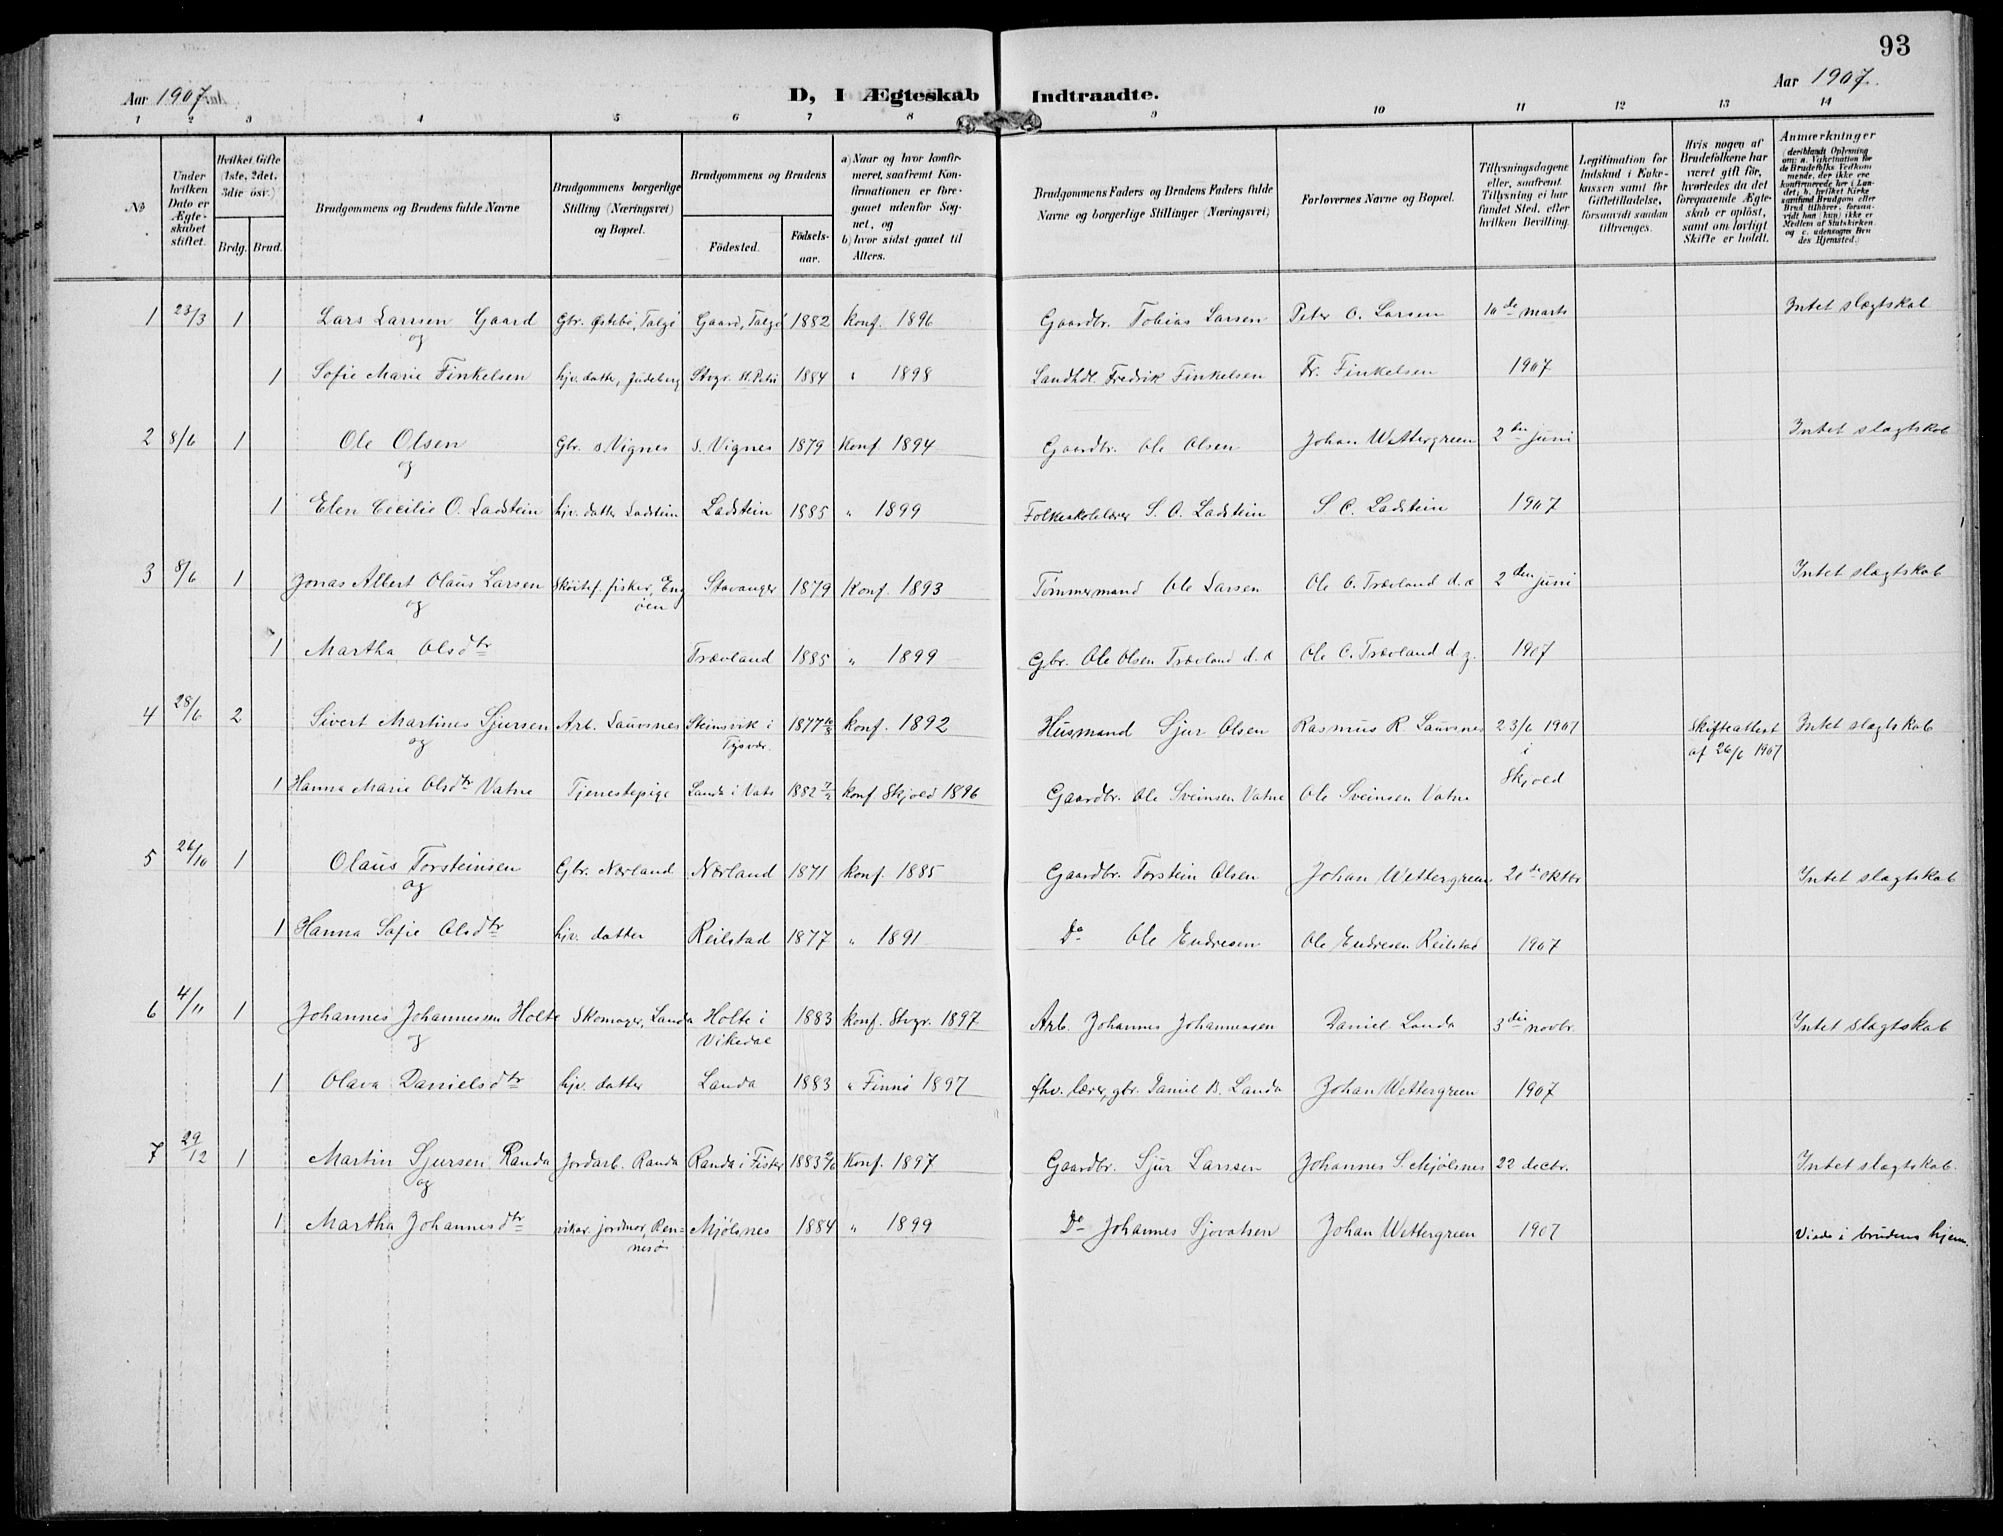 93
Aar 1907.
D, I Ægteskab Indtraadte.
Aar 1907.
1 2 3 4 5 6 7 8 9 10 11 12 13 14
№
Under hvilken Dato er Ægteskabet stiftet.
Hvilket Gifte (1ste, 2det, 3die osv.)
Brdg. Brud.
Brudgommens og Brudens fulde Navne
Brudgommens borgerlige Stilling (Næringsvei) og Bopæl.
Brudgommens og Brudens
Födested. Födselsaar.
a) Naar og hvor konfirmeret, saafremt Konfirmationen er foregaaet udenfor Sognet, og
b) hvor sidst gaaet til Alters.
Brudgommens Faders og Brudens Faders fulde Navne og borgerlige Stillinger (Næringsvei)
Forlovernes Navne og Bopæl.
Tillysningsdagene eller, saafremt Tillysning ei har fundet Sted, efter hvilken Bevilling.
Legitimation for Indskud i Enkekassen samt for Giftetilladelse, forsaavidt saadan tiltrænges.
Hvis nogen af Brudefolkene har været gift för, hvorledes da det foregaaende Ægteskab er oplöst, samt om lovligt Skifte er holdt.
Anmærkninger
(deriblandt Oplysning om: a. Vakcination for de Brudefolks Vedkommende, der ikke ere konfirmerede her i Landet, b. hvilket Kirkesamfund Brudgom eller Brud tilhörer, forsaavidt han (hun) ikke er Medlem af Statskirken og c. udensogns Brudes Hjemsted.)
1 23/3 1 Lars Larsen Gaard Gbr. Østebö, Talgö Gaard, Talgö 1882 konf. 1896 Gaardbr. Tobias Larsen Peter O. Larsen 10de marts Intet slægtskab
og
1 Sofie Marie Finkelsen hjv. datter, Judeberg Stvgr. St. Petri 1884 " 1898 Landhdl. Fredrik Finkelsen Fr. Finkelsen 1907
2 8/6 1 Ole Olsen Gbr. s. Vignes s. Vignes 1879 Konf. 1894 Gaardbr. Ole Olsen Johan Wettergreen 2den juni Intet slægtskab
og
1 Elen Cecilie O. Ladstein hjv. datter Ladstein Ladstein 1885 " 1899 Folkeskolelærer S. O. Ladstein S. O. Ladstein 1907
3 8/6 1 Jonas Albert Olaus Larsen Sköitef. fisker, Engöen Stavanger 1879 Konf. 1893 Tømmermand Ole Larsen Ole O. Trævland d. æ 2den juni Intet slægtskab
og
1 Martha Olsdtr Trævland 1885 " 1899 Gbr. Ole Olsen Trævland d. æ Ole O. Trævland d. y. 1907
4 28/6 2 Sivert Martines Sjursen Arb. Lauvsnes Steinsvik i Tysvær 1877 konf. 1892 Husmand Sjur Olsen Rasmus R. Lauvsnes 23/6 1907 Skifteattest af 26/6 1907 Intet slægtskab
og i
1 Hanna Marie Olsdtr Vatne Tjenestepige Landa i Vats 1882 7/2 konf Skjold 1896 Gaardbr. Ole Sveinsen Vatne Ole Sveinsen Vatne Skjold
5 26/10 1 Olaus Torsteinsen Gbr. Nærland Nærland 1871 konf. 1885 Gaardbr. Torstein Olsen Johan Wettergreen 20de oktbr Intet slægtskab
og
1 Hanna Sofie Olsdtr hjv. datter Reilstad 1877 " 1891 Do Ole Endresen Ole Endresen Reilstad 1907
6 4/11 1 Johannes Johannessen Holte Skomager, Landa Holte i Vikedal 1883 konf. Stvgr. 1897 Arb. Johannes Johannessen Daniel Landa 3die novbr. Intet slægtskab
og
1 Olava Danielsdtr hjv. datter Landa 1883 " Finnö 1897 fhv. lærer, gbr. Daniel B. Landa Johan Wettergreen 1907
7 29/12 1 Martin Sjursen Randa Jordarb. Randa Randa i Fister 1883 Konf. 1897 Gaardbr. Sjur Larssen Johannes S. Mjølsnes 22 decbr. Intet slægtskab.
og
1 Martha Johannesdtr vikar. jordmor, Rennesö Mjølsnes 1884 " 1899 Do Johannes Sjovatsen Johan Wettergreen 1907 Viede i brudens hjem.